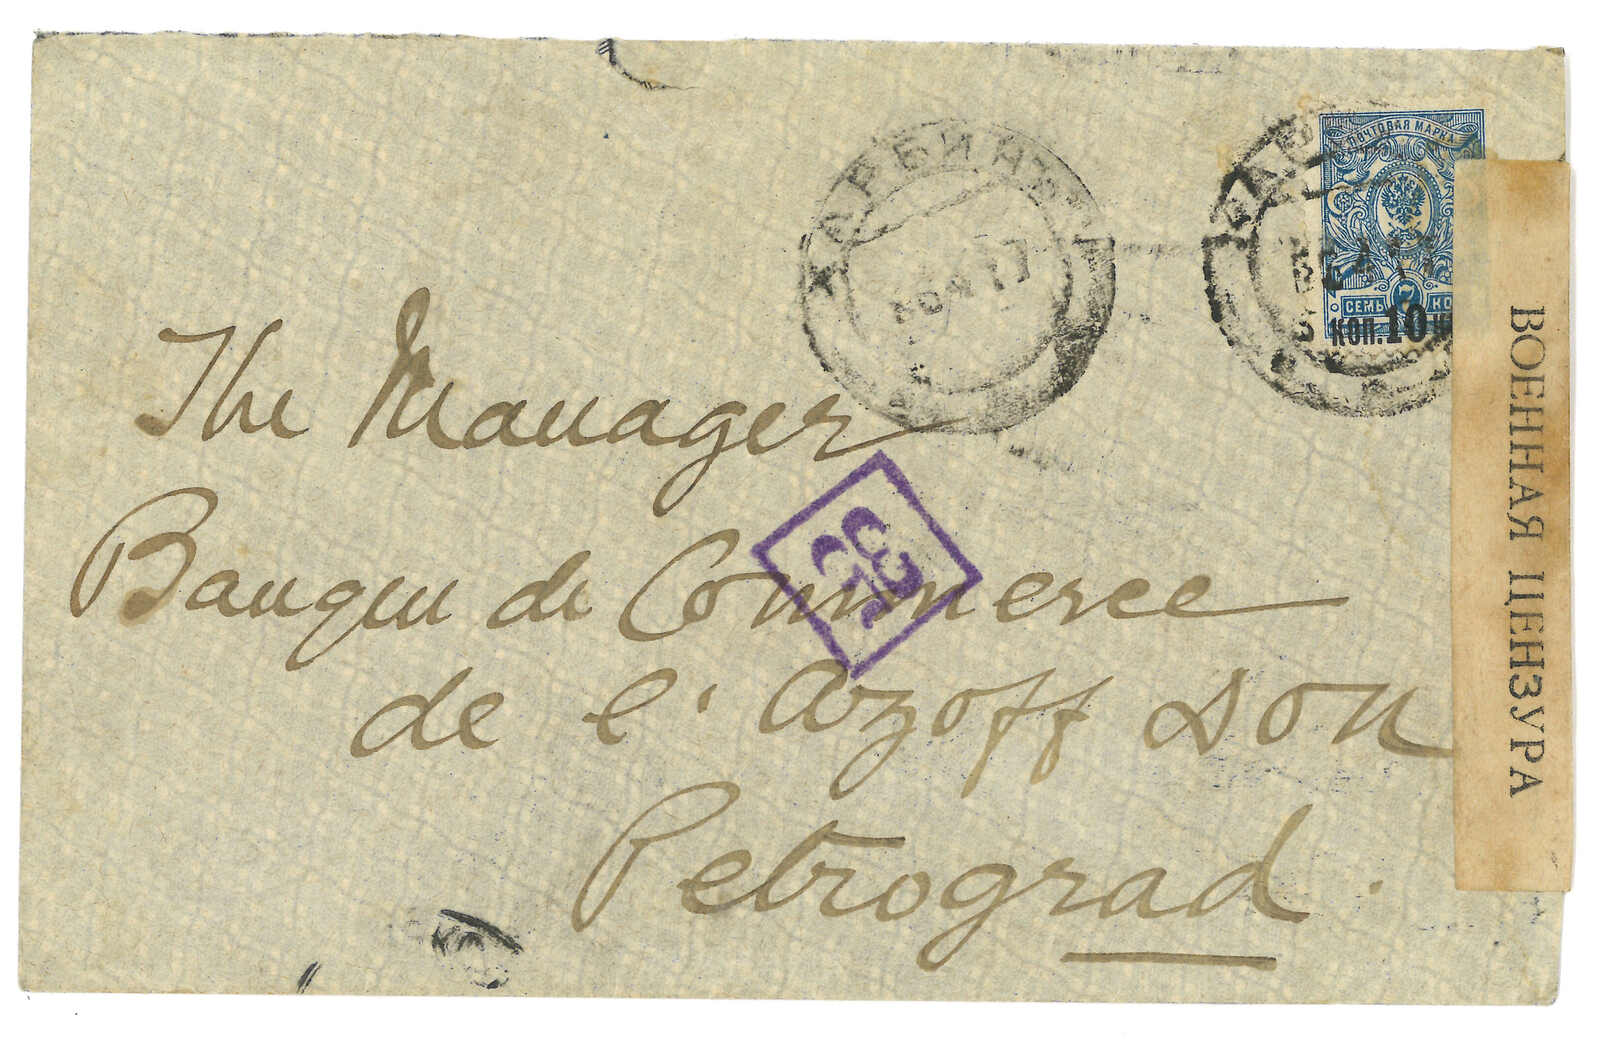 ПОЧТОВАЯ МАРКА
СЕМЬ 7 КО
КОП. 10
ХАРБИНЪ
17
The Manager
Banque de Commerce
de l'Azoff Don
Petrograd.
ВОЕННАЯ ЦЕНЗУРА